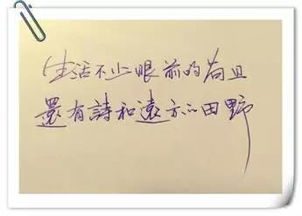 生活不止眼前的苟且
還有詩和遠方的田野